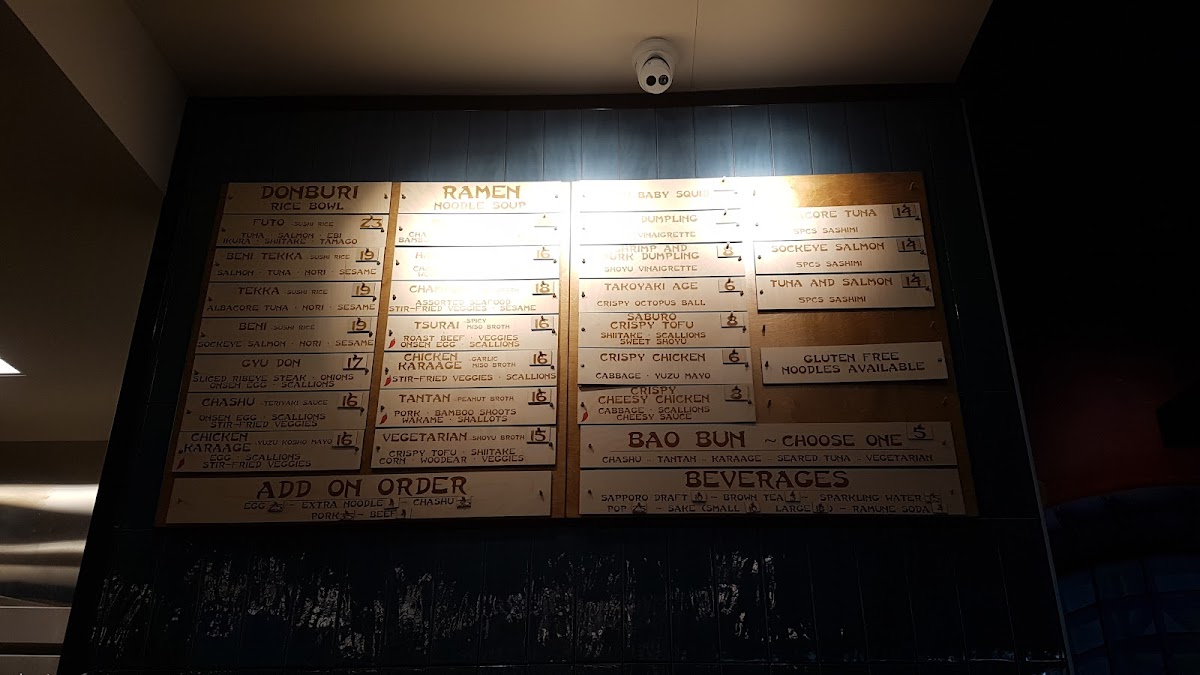 DONBURI
RICE BOWL
FUTO - SUSHI RICE 23
TUNA - SALMON - EBI
IKURA - SHIITAKE - TAMAGO
BENI TEKKA - SUSHI RICE 19
SALMON - TUNA - NORI - SESAME
TEKKA - SUSHI RICE 19
ALBACORE TUNA - NORI - SESAME
BENI - SUSHI RICE 19
SOCKEYE SALMON - NORI - SESAME
GYU DON 17
SLICED RIBEYE STEAK - ONIONS
ONSEN EGG - SCALLIONS
CHASHU - TERIYAKI SAUCE 16
ONSEN EGG - SCALLIONS
STIR-FRIED VEGGIES
CHICKEN KARAAGE - YUZU KOSHO MAYO 16
EGG - SCALLIONS
STIR-FRIED VEGGIES
ADD ON ORDER
EGG - EXTRA NOODLE - CHASHU
PORK - BEEF
RAMEN
NOODLE SOUP
16
18
ASSORTED SEAFOOD
STIR-FRIED VEGGIES - SESAME
TSURAI - SPICY MISO BROTH 16
ROAST BEEF - VEGGIES
ONSEN EGG - SCALLIONS
CHICKEN KARAAGE - GARLIC MISO BROTH 16
STIR-FRIED VEGGIES - SCALLIONS
TANTAN - PEANUT BROTH 16
PORK - BAMBOO SHOOTS
WAKAME - SHALLOTS
VEGETARIAN - SHOYU BROTH 15
CRISPY TOFU - SHIITAKE
CORN - WOODEAR - VEGGIES
BABY SQUID
DUMPLING
VINAIGRETTE
SHRIMP AND
PORK DUMPLING 8
SHOYU VINAIGRETTE
TAKOYAKI AGE 6
CRISPY OCTOPUS BALL
SABURO
CRISPY TOFU 8
SHIITAKE - SCALLIONS
SWEET SHOYU
CRISPY CHICKEN 6
CABBAGE - YUZU MAYO
CRISPY
CHEESY CHICKEN 8
CABBAGE - SCALLIONS
CHEESY SAUCE
TUNA 14
5PCS SASHIMI
SOCKEYE SALMON 14
5PCS SASHIMI
TUNA AND SALMON 14
5PCS SASHIMI
GLUTEN FREE
NOODLES AVAILABLE
BAO BUN ~ CHOOSE ONE 5
CHASHU - TANTAN - KARAAGE - SEARED TUNA - VEGETARIAN
BEVERAGES
SAPPORO DRAFT - BROWN TEA - SPARKLING WATER
POP - SAKE (SMALL LARGE ) - RAMUNE SODA